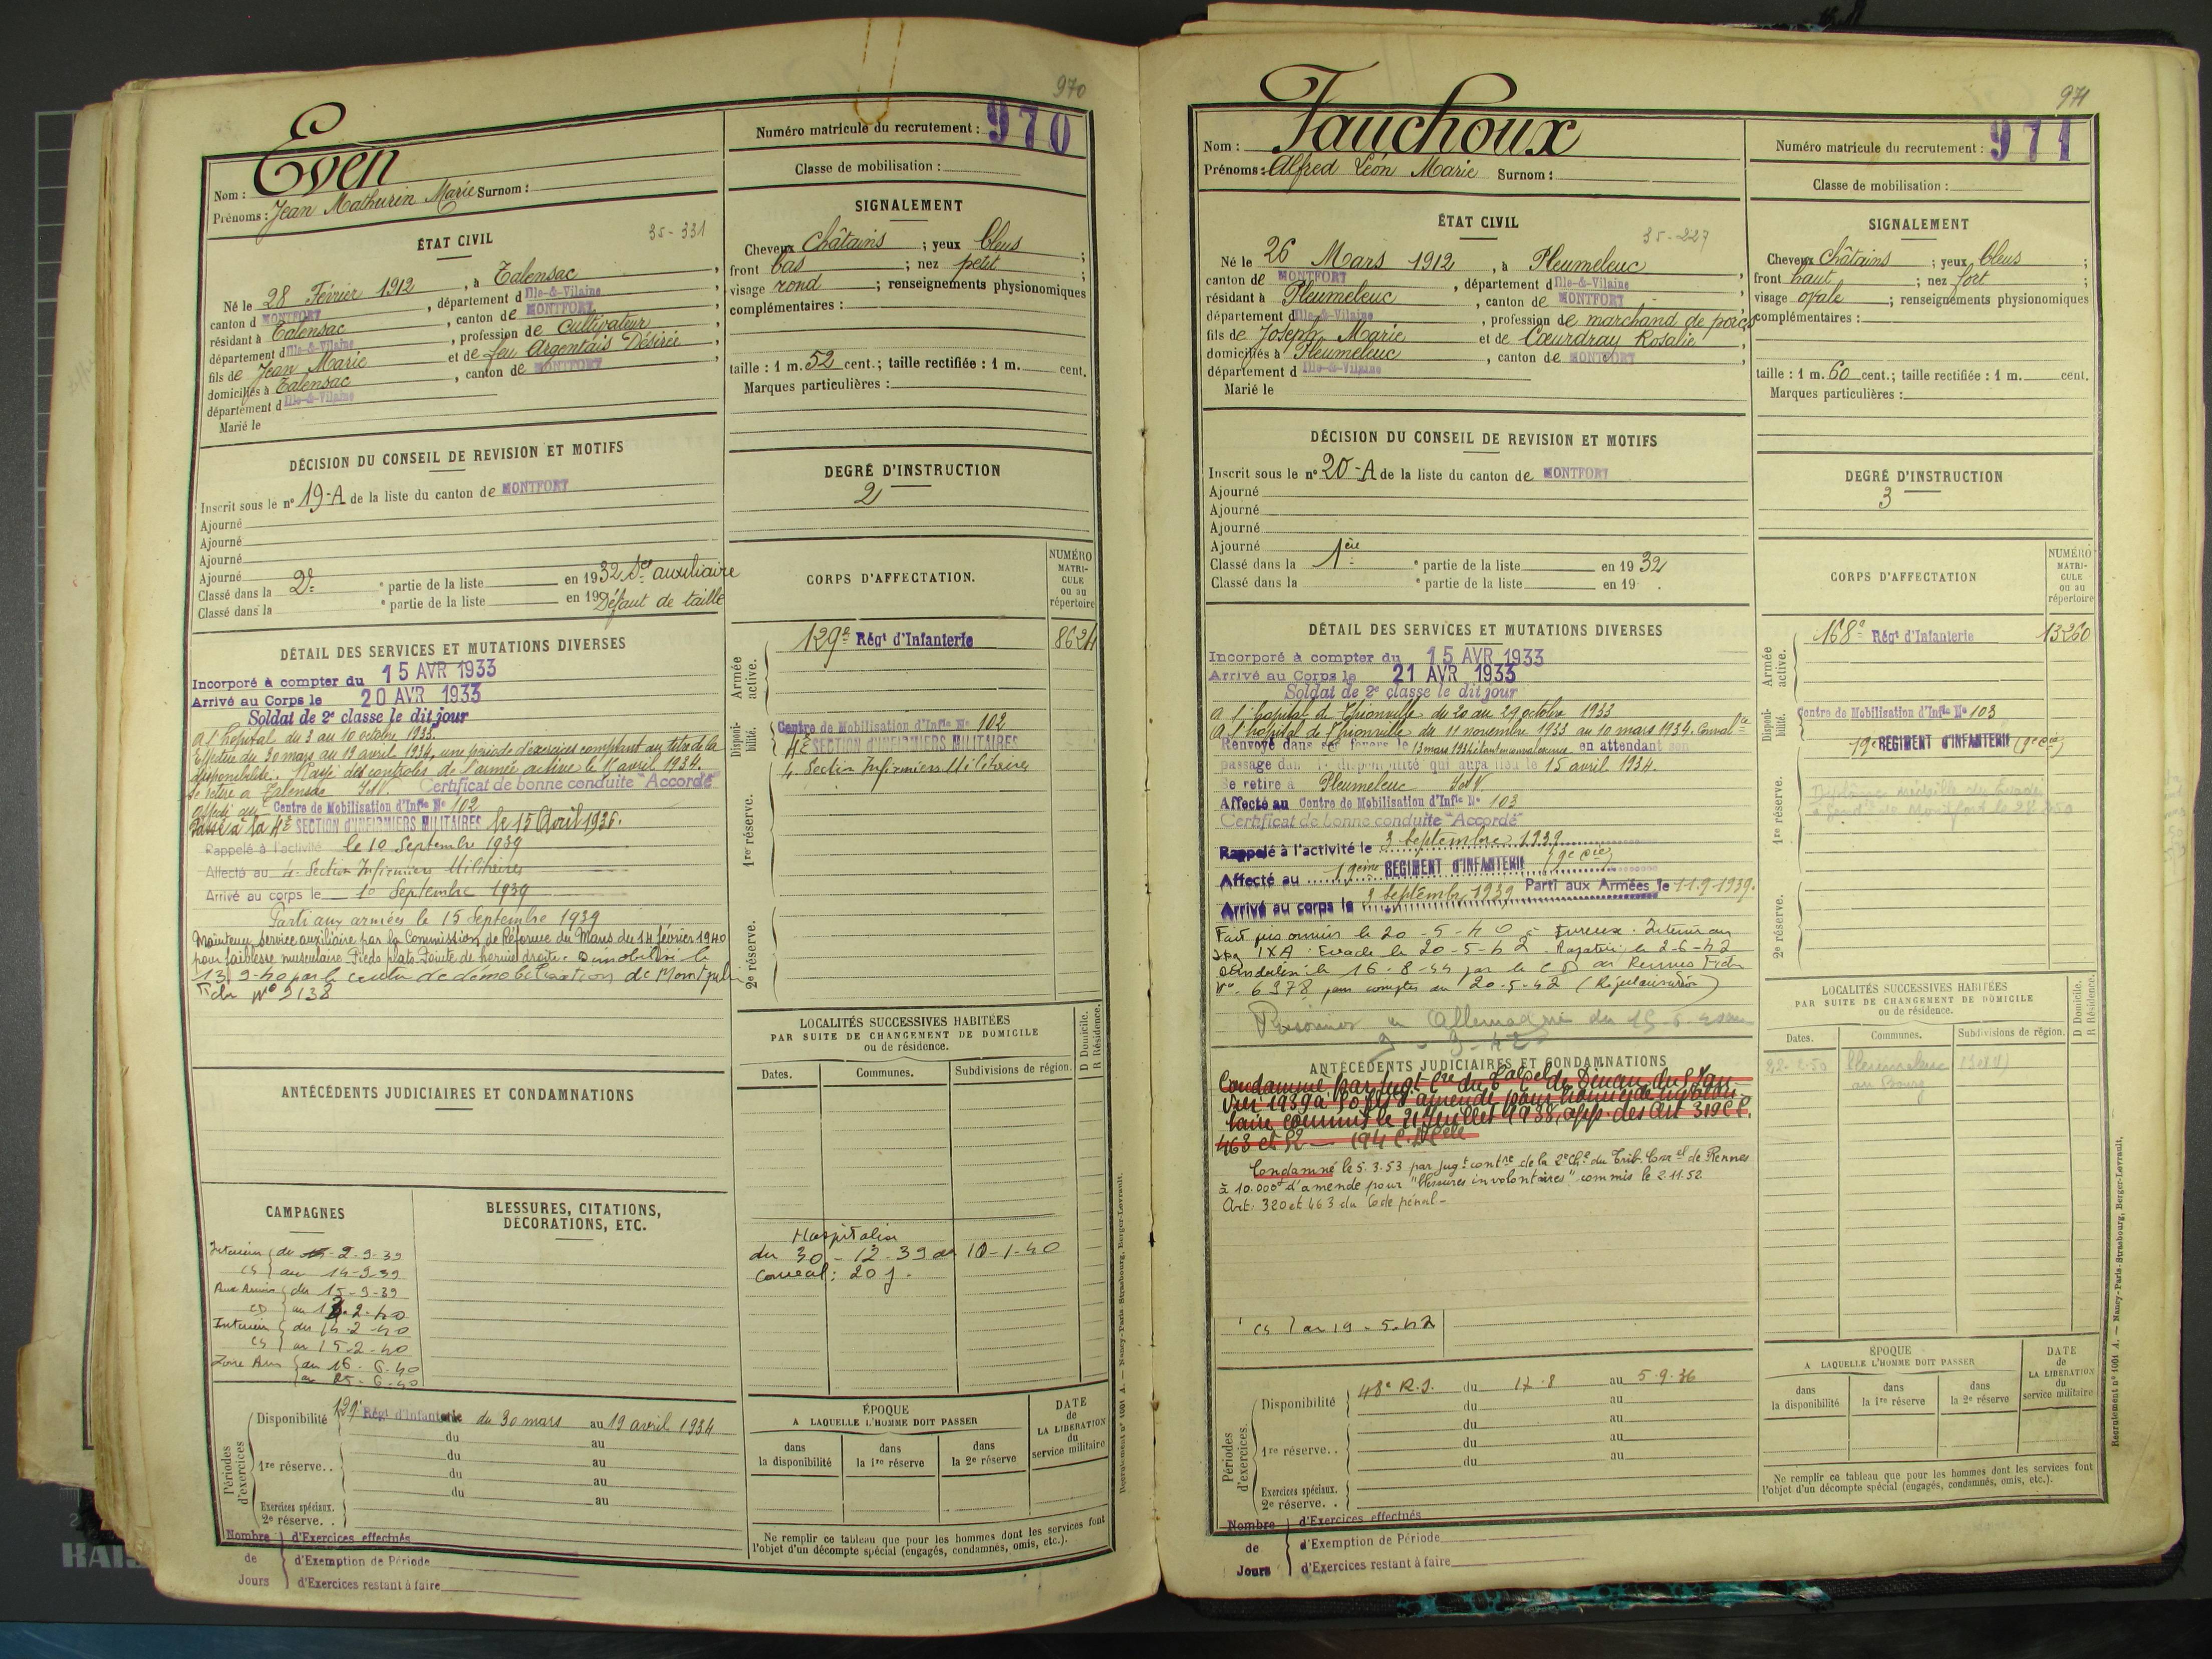 970
Numéro matricule du recrutement : 970
Nom : Even
Prénoms : Jean Mathurin Marie Surnom :
Classe de mobilisation :
ÉTAT CIVIL
35-331
Né le 28 Février 1912, à Talensac,
canton d MONTFORT, département d Ille-&-Vilaine,
résidant à Talensac, canton de MONTFORT,
département d Ille-&-Vilaine, profession de Cultivateur,
fils de Jean Marie et de feu Argentais Désirée,
domiciliés à Talensac, canton de MONTFORT,
département d Ille-&-Vilaine
Marié le
SIGNALEMENT
Cheveux Châtains ; yeux bleus ;
front bas ; nez petit ;
visage rond ; renseignements physionomiques
complémentaires :
taille : 1 m. 52 cent.; taille rectifiée : 1 m. cent.
Marques particulières :
DÉCISION DU CONSEIL DE REVISION ET MOTIFS
Inscrit sous le n° 19-A de la liste du canton de MONTFORT
Ajourné
Ajourné
Ajourné
Ajourné
Classé dans la 2e ° partie de la liste en 1932 Sce auxiliaire
Classé dans la ° partie de la liste en 19 Défaut de taille
DEGRÉ D'INSTRUCTION
2
CORPS D'AFFECTATION.
NUMÉRO MATRICULE ou au répertoire
Armée active.
129e Régt d'Infanterie 8624
Disponibilité.
Centre de Mobilisation d'Infie No 102
4e SECTION D'INFIRMIERS MILITAIRES
4 Section Infirmiers Militaires
1re réserve.
2e réserve.
DÉTAIL DES SERVICES ET MUTATIONS DIVERSES
Incorporé à compter du 15 AVR 1933
Arrivé au Corps le 20 AVR 1933
Soldat de 2e classe le dit jour
A l'hopital du 3 au 10 octobre 1933.
Effectue du 30 mars au 19 avril 1934, une période d'exercices comptant au titre de la
disponibilité. Rayé des contrôles de l'armée active le 15 avril 1934.
Se retire à Talensac IetV. Certificat de bonne conduite "Accordé"
Affecté au Centre de Mobilisation d'Infie No 102
Passé à la 4e SECTION D'INFIRMIERS MILITAIRES le 15 Avril 1936.
Rappelé à l'activité le 10 Septembre 1939
Affecté au 4 Section Infirmiers Militaires
Arrivé au corps le 10 Septembre 1939
Parti aux armées le 15 Septembre 1939
Maintenu service auxiliaire par la Commission de Réforme du Mans du 14 février 1940
pour faiblesse musculaire. Pieds plats. Pointe de hernie droite. Démobilisé le
13-9-40 par le centre de démobilisation de Montpel
Fiche No 9138
LOCALITÉS SUCCESSIVES HABITÉES
PAR SUITE DE CHANGEMENT DE DOMICILE
ou de résidence.
D Domicile.
R Résidence.
Dates. Communes. Subdivisions de région.
ANTÉCÉDENTS JUDICIAIRES ET CONDAMNATIONS
Hospitalisé
du 30-12-39 au 10-1-40
Conval: 20 j.
CAMPAGNES
Intérieur du 2-9-39
CS au 14-9-39
Aux Armées du 15-9-39
CD au 13-2-40
Intérieur du 14-2-40
CS au 15-2-40
Zone Arm du 16-6-40
au 25-6-40
BLESSURES, CITATIONS, DÉCORATIONS, ETC.
Périodes d'exercices
Disponibilité 129e Régt d'Infanterie du 30 mars au 19 avril 1934
du au
du au
1re réserve.. du au
du au
Exercices spéciaux.
2e réserve..
Nombre de Jours
d'Exercices effectués
d'Exemption de Période
d'Exercices restant à faire
ÉPOQUE
A LAQUELLE L'HOMME DOIT PASSER
dans la disponibilité
dans la 1re réserve
dans la 2e réserve
DATE de LA LIBÉRATION du service militaire
Ne remplir ce tableau que pour les hommes dont les services font
l'objet d'un décompte spécial (engagés, condamnés, omis, etc.).
Recrutement n° 1001 A. — Nancy-Paris-Strasbourg, Berger-Levrault.
971
Numéro matricule du recrutement : 971
Nom : Fauchoux
Prénoms : Alfred Léon Marie Surnom :
Classe de mobilisation :
ÉTAT CIVIL
35-227
Né le 26 Mars 1912, à Pleumeleuc,
canton de MONTFORT, département d Ille-&-Vilaine,
résidant à Pleumeleuc, canton de MONTFORT,
département d Ille-&-Vilaine, profession de marchand de porcs
fils de Joseph Marie et de Coeurdray Rosalie,
domiciliés à Pleumeleuc, canton de MONTFORT,
département d Ille-&-Vilaine
Marié le
SIGNALEMENT
Cheveux Châtains ; yeux bleus ;
front haut ; nez fort ;
visage ovale ; renseignements physionomiques
complémentaires :
taille : 1 m. 60 cent.; taille rectifiée : 1 m. cent.
Marques particulières :
DÉCISION DU CONSEIL DE REVISION ET MOTIFS
Inscrit sous le n° 20-A de la liste du canton de MONTFORT
Ajourné
Ajourné
Ajourné
Ajourné
Classé dans la 1ère ° partie de la liste en 1932
Classé dans la ° partie de la liste en 19
DEGRÉ D'INSTRUCTION
3
CORPS D'AFFECTATION
NUMÉRO MATRICULE ou au répertoire
Armée active.
168e Régt d'Infanterie 13260
Disponibilité.
Centre de Mobilisation d'Infie No 103
19e REGIMENT D'INFANTERIE (9e Cie)
1re réserve.
2e réserve.
DÉTAIL DES SERVICES ET MUTATIONS DIVERSES
Incorporé à compter du 15 AVR 1933
Arrivé au Corps le 21 AVR 1933
Soldat de 2e classe le dit jour
A l'hopital de Thionville du 20 au 29 octobre 1933
A l'hopital de Thionville du 11 novembre 1933 au 10 mars 1934. Convalce
Renvoyé dans ses foyers le 13 mars 1934 étant en convalescence en attendant son
passage dans la disponibilité qui aura lieu le 15 avril 1934.
Se retire à Pleumeleuc IetV.
Affecté au Centre de Mobilisation d'Infie No 103
Certificat de bonne conduite "Accordé"
Rappelé à l'activité le 3 Septembre 1939
Affecté au 19ème REGIMENT D'INFANTERIE (9e Cie)
Arrivé au corps le 3 Septembre 1939 Parti aux Armées le 11-9-1939.
Fait pris onnier le 20-5-40 à Evreux. Interné au
Stg IXA. Evadé le 20-5-42. Rapatrié le 2-6-42
Démobilisé le 16-8-44 par le CD de Rennes Fiche
No 6378 pour compter du 20-5-42 (Régularisation)
Prisonnier en Allemagne du 15.6.40 au
LOCALITÉS SUCCESSIVES HABITÉES
PAR SUITE DE CHANGEMENT DE DOMICILE
ou de résidence.
D Domicile.
R Résidence.
Dates. Communes. Subdivisions de région.
22-2-50 Pleumeleuc
au Bourg
ANTÉCÉDENTS JUDICIAIRES ET CONDAMNATIONS
Condamné par Jugt Cre du T. Cel de Dinan du Jan-
vier 1939 à 50 frs d'amende pour homicide involon-
taire commis le 21 Juillet 1938, app. des Art 319 C.P.
463 et 52
Condamné le 5.3.53 par jugt contre de la 2e Che du Trib. Corel de Rennes
à 10.000f d'amende pour "blessures involontaires" commis le 2.11.52
Art. 320 et 463 du Code pénal-
CS au 19-5-42
Périodes d'exercices
Disponibilité 48e R.I. du 17-8 au 5-9-36
du au
du au
1re réserve.. du au
du au
Exercices spéciaux.
2e réserve..
Nombre de Jours
d'Exercices effectués
d'Exemption de Période
d'Exercices restant à faire
ÉPOQUE
A LAQUELLE L'HOMME DOIT PASSER
dans la disponibilité
dans la 1re réserve
dans la 2e réserve
DATE de LA LIBÉRATION du service militaire
Ne remplir ce tableau que pour les hommes dont les services font
l'objet d'un décompte spécial (engagés, condamnés, omis, etc.).
Recrutement n° 1001 A. — Nancy-Paris-Strasbourg, Berger-Levrault.